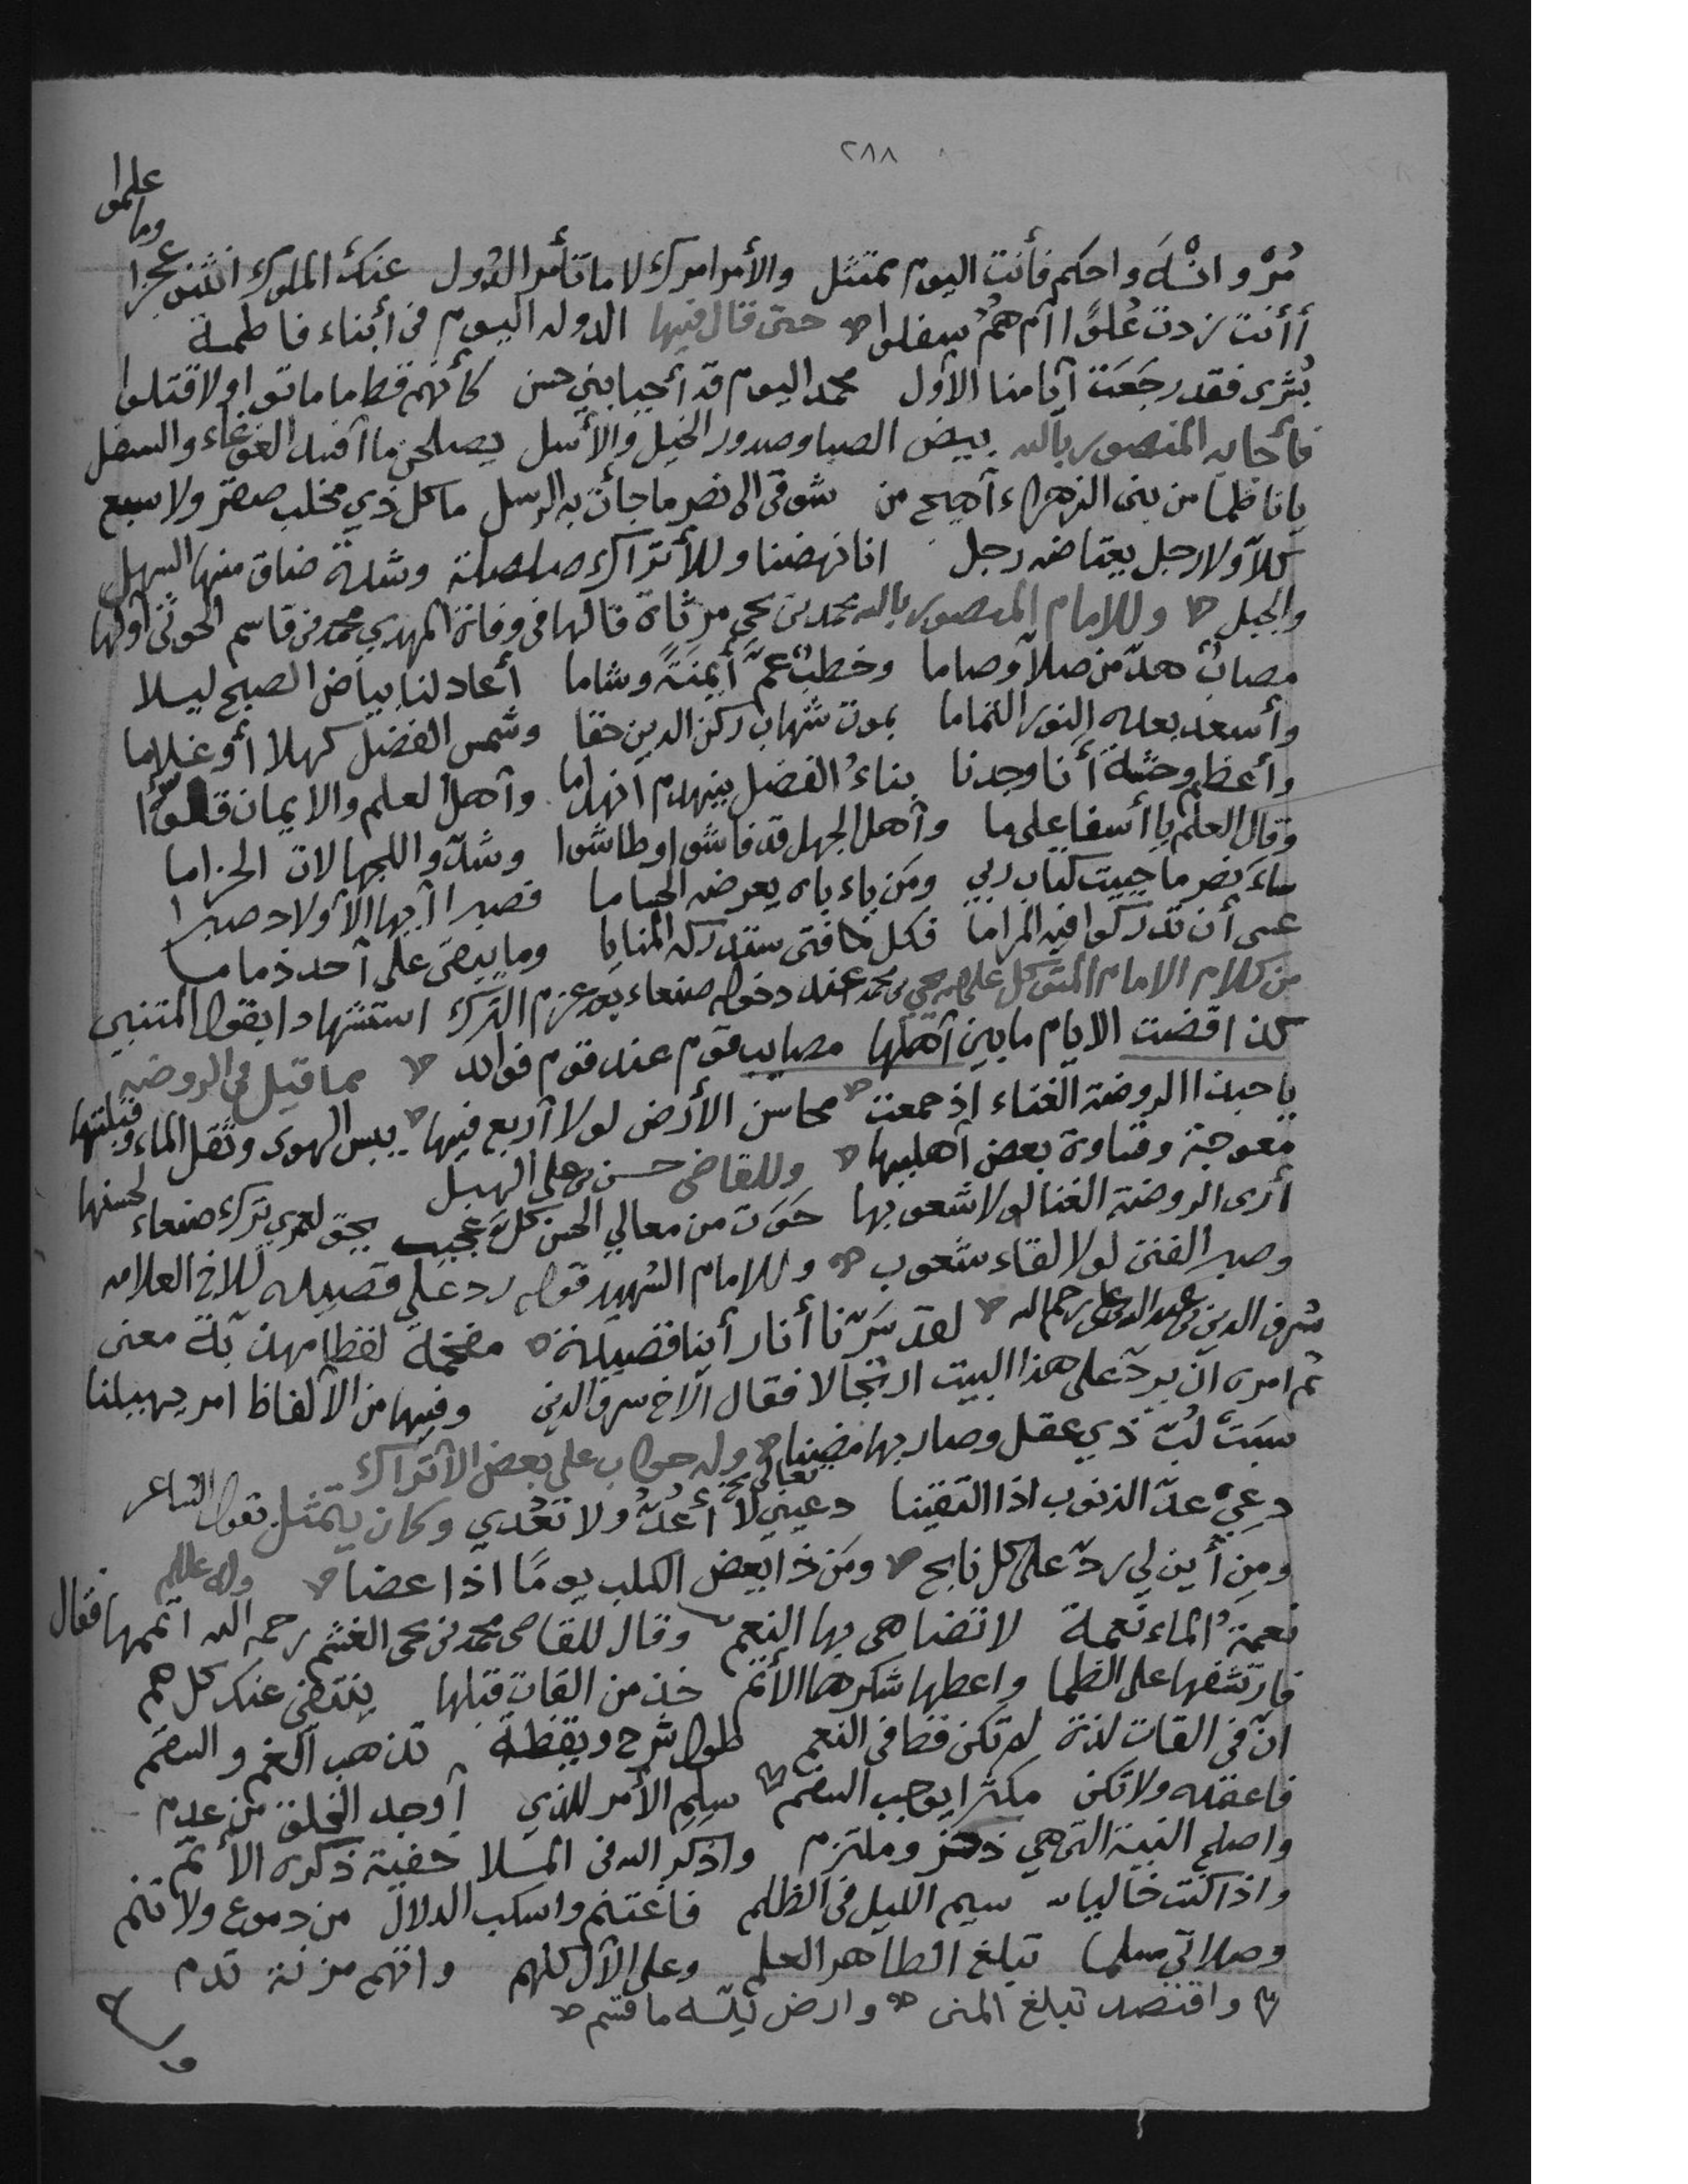 ٢٨٨
علموا
وما
مُرْ وانْهَ واحكم فأنت اليوم ممتثل والأمر امرك لا ما تأمر الدول عنك الملوك انثنى عجزا
أأنت زدت عُلوًّا أم همُ سفلوا حتى قال فيها الدوله اليوم في أبناء فاطمة
بُشرى فقد رجَعَت أيامنا الأول محمد اليوم قد أحيا بني حسن كأنهم قط ما ماتوا ولا قتلوا
فأجابه المنصور بالله ببيض الصبا وصدور الخيل والأسل يصلحن ما أفسد الغوغاء والسفل
يا ناظما من بني الزهراء أهيج من شوقي الى نصر ما جأت به الرسل ما كل ذي مخلب صقر ولا سبع
كلا ولا رجل يعتاضه رجل انا نهضنا وللأتراك صلصلة وشدة ضاق منها السهل
والجبل وللامام المنصور بالله محمد بن يحيى مرثاة قالها في وفاة المهدي محمد بن قاسم الحوثي أولها
مصابٌ هدّ من صلا وصاما وخطبٌ عمّ أيمنَةً وشاما أعاد لنا بياض الصبح ليلا
وأسعد بعده النور التماما بموت شهاب ركن الدين حقا وشمس الفضل كهلا أو غلاما
وأعظم وحشة أنا وجدنا بناءُ الفضل ينهدم انهداما وأهل العلم والايمان قلّوا
وقال العلم يا أسفا على ما وأهل الجهل قد فاشوا وطاشوا وشدّوا اللجهالات الحزاما
ساء نصر ما حييت كتاب ربي ومَن ياباه يعرضه الحماما فصبرا أيها الأولاد صبرا
عسى أن تدركوا فيه المراما فكل فتى ستدركه المنايا وما يبقى على أحد ذماما
من كلام الامام المتوكل على الله يحيى بن محمد عند دخوله صنعاء بعد عزم الترك استشهادا بقول المتنبي
كذا قضت الايام ما بين أهلها مصايب قوم عند قوم فوائد مما قيل في الروضه
يا حبذا الروضة الغناء اذ جمعت محاسن الأرض لولا أربع فيها يبس الهوى وثقل الماء وقبلتها
معوجة وقساوة بعض أهليها وللقاضي حسن بن علي الهبل
أرى الروضة الغنا لولا شعوبها حَوَت من معالي الحسن كلَّ عجيب بحق لعمري ترك صنعاء لحسنها
وصبر الفتى لولا لقاء شعوب وللامام الشهيد قوله ردّ على قصيده للاخ العلامه
شرف الدين بن عبد الله بن علي رحمه الله لقد سَرّنا أنا رأينا قصيدة مفخمة لفظا مهذبة معنى
ثم امره ان يردّ على هذا البيت ارتجالا فقال الاخ شرف الدين وفيها من الألفاظ امر يهيلنا
سبَت لُبّ ذي عقل وصار بها مضنا وله جواب على بعض الأتراك
دعي عدّ الذنوب اذا التقينا تعالي دعيني لا أعُدُّ ولا تعُدي وكان يتمثل بقول الشاعر
ومِن أين لي ردّ على كل نابح ومَن ذا يعض الكلب يومًا اذا عضا وله عليلم
نعمةُ الماء نعمة لا تضاهى بها النعم وقال للقاضي محمد بن يحيى الغشم رحمه الله اتممها فقال
فارتشفها على الظما واعطها شكرها الأتم خذ من القات قبلها ينتفي عنك كل هم
انّ في القات لذة لم تكن قط في النعم طول شرح ويقظة تذهب الغم والسقم
فاعقده ولا تكن مكثرا يوجب السقم سلم الأمر للذي أوجد الخلق من عدم
واصلح النية التي هي ذخر وملتزم واذكر الله في الملا خفية ذكره الأتم
واذا كنت خاليا سيم الليل في الظلم فاغتنم واسكب الدلال من دموع ولا تنم
وصلاتي مسلما تبلغ الطاهر العلم وعلى الآل كلهم وانهم مزنة تدم
واقتصد تبلغ المنى وارض لله ما قسم